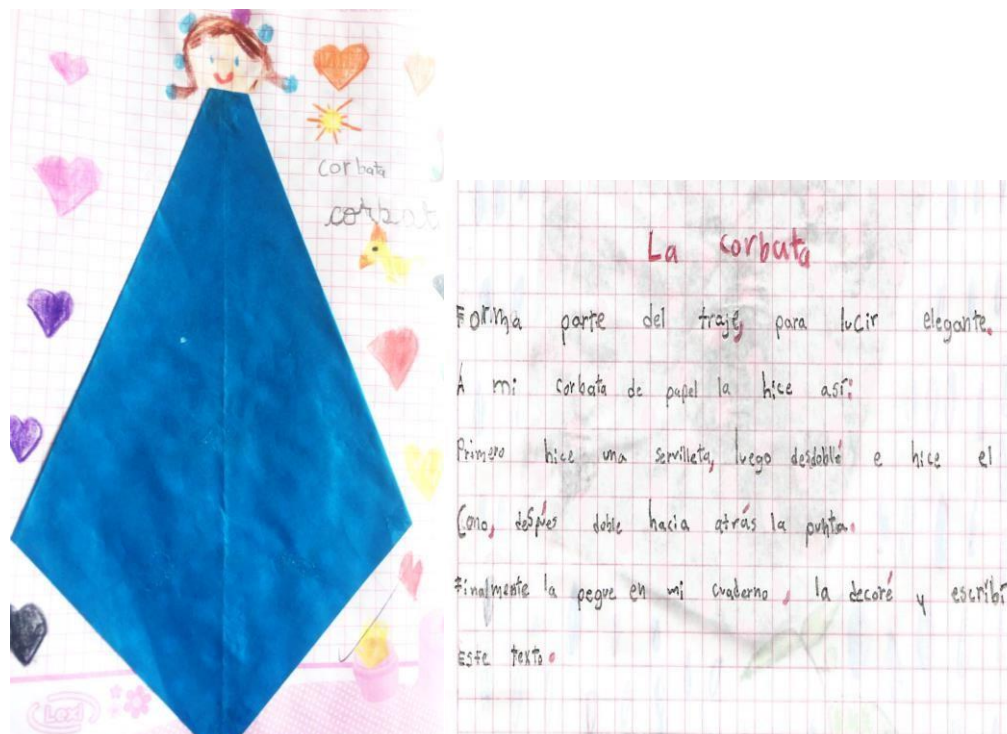 corbata
corbat
Lexi
La corbata
Forma parte del traje, para lucir elegante.
A mi corbata de papel la hice así:
Primero hice una servilleta, luego desdoblé e hice el
Cono, despúes doble hacia atrás la punta.
Finalmente la pegue en mi cuaderno, la decoré y escribí
Este texto.